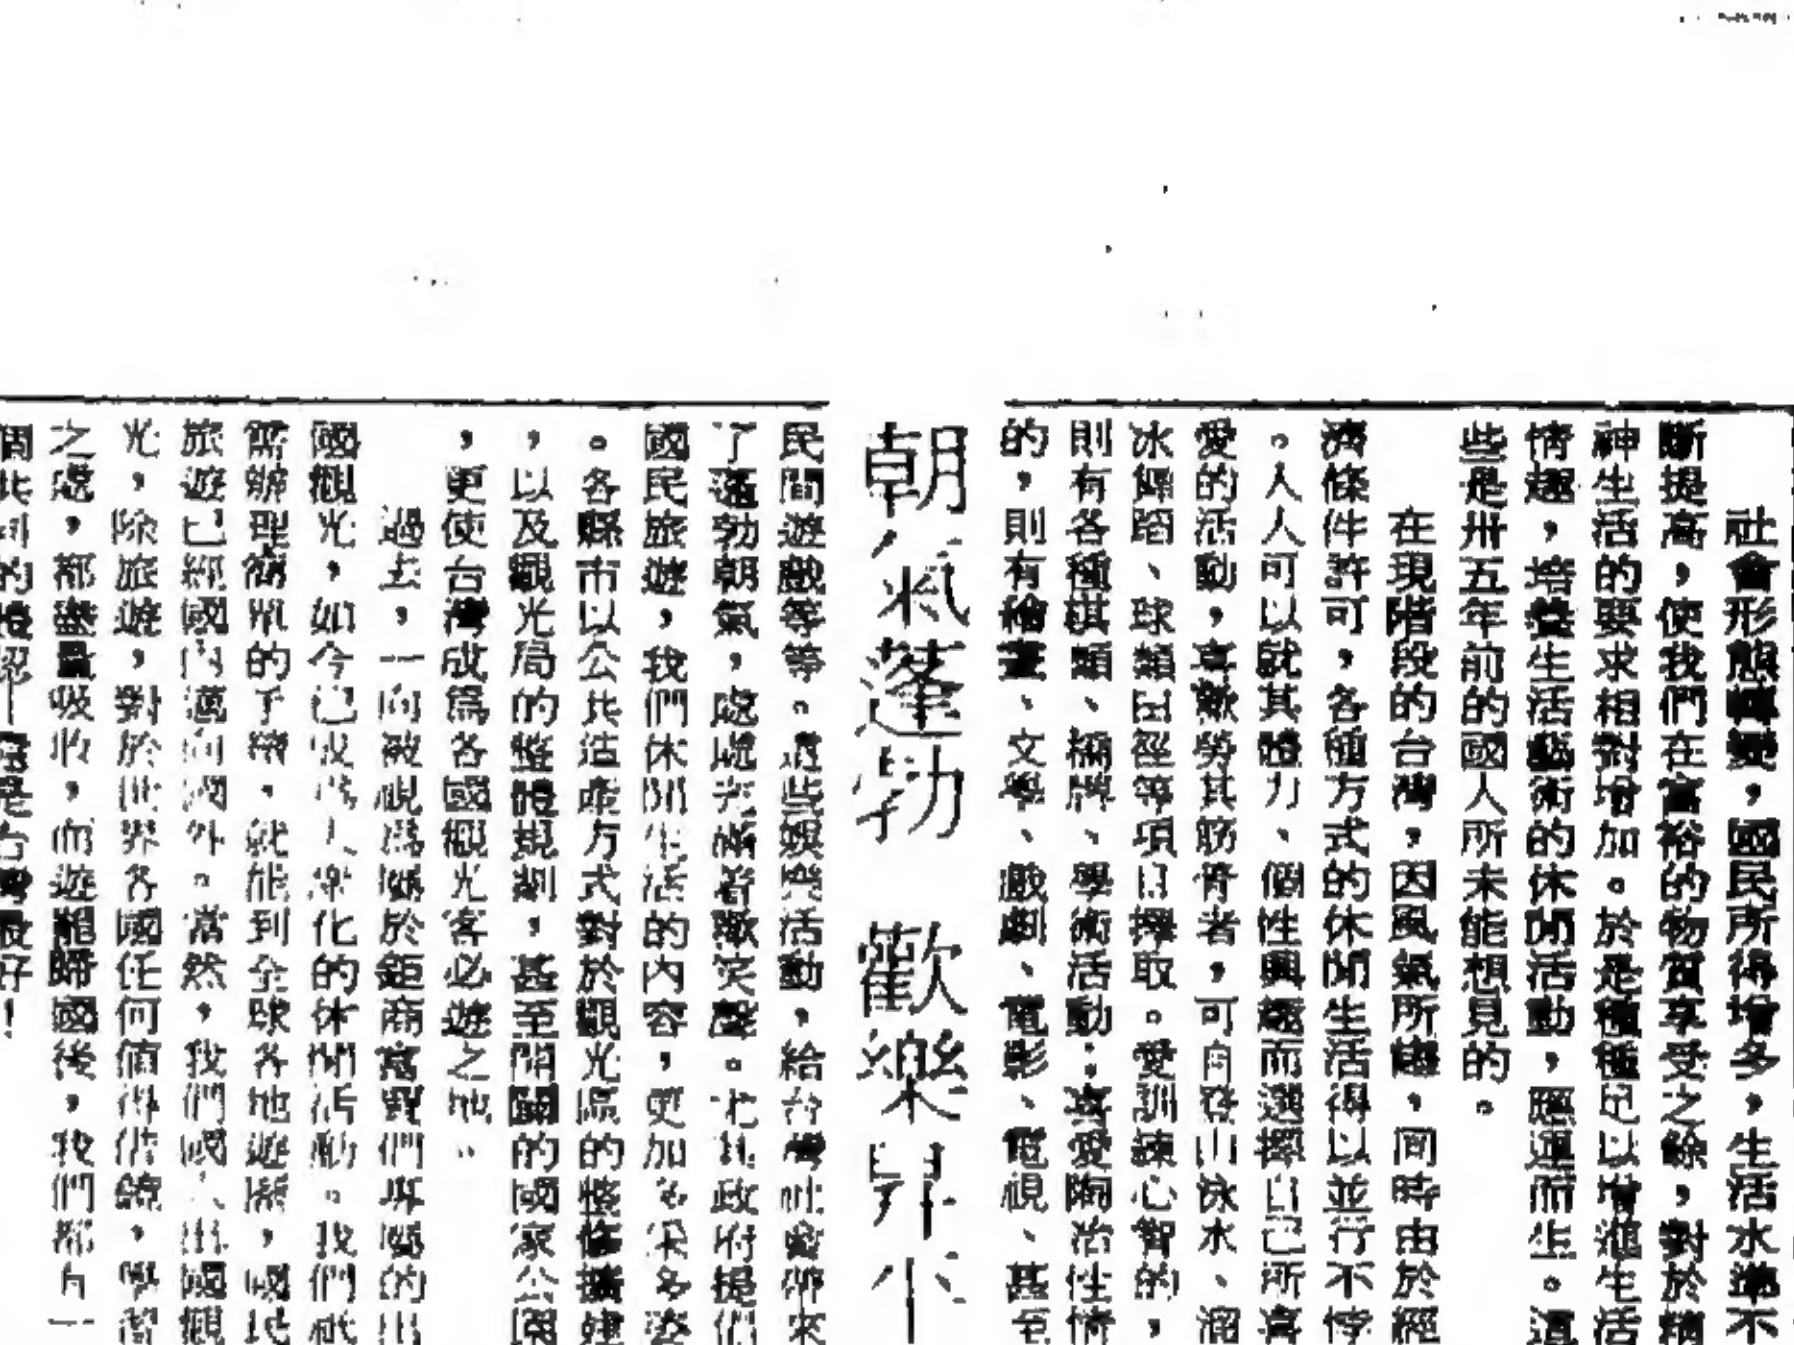 社會形態轉變，國民所得增多，生活水準不
斷提高，使我們在富裕的物質享受之餘，對於精
神生活的要求相對增加。於是種種足以增進生活
情趣，培養生活藝術的休閒活動，應運而生。這
些是卅五年前的國人所未能想見的。
在現階段的台灣，因風氣所趨，同時由於經
濟條件許可，各種方式的休閒生活得以並行不悖
。人人可以就其體力、個性興趣而選擇自己所喜
愛的活動，喜歡勞其筋骨者，可有登山泳水、溜
冰舞蹈、球類田徑等項目擇取。愛訓練心智的，
則有各種棋類、橋牌、學術活動；喜愛陶冶性情
的，則有繪畫、文學、戲劇、電影、電視、甚至
朝氣蓬勃 歡樂
民間遊戲等等。這些娛樂活動，給台灣社會帶來
了蓬勃朝氣，處處充滿著歡笑聲。尤其政府提倡
國民旅遊，我們休閒生活的內容，更加多采多姿
。各縣市以公共造產方式對於觀光區的整修擴建
，以及觀光局的整體規劃，甚至開闢的國家公園
，更使台灣成為各國觀光客必遊之地。
過去，一向被視為屬於鉅商富賈們專屬的出
國觀光，如今已成為大眾化的休閒活動。我們祇
需辦理簡單的手續，就能到全球各地遊歷，國民
旅遊已經國內邁向國外。當然，我們國人出國觀
光，除旅遊，對於世界各國任何值得借鏡，學習
之處，都盡量吸收，而遊罷歸國後，我們都有一
個共同的體認—還是台灣最好！